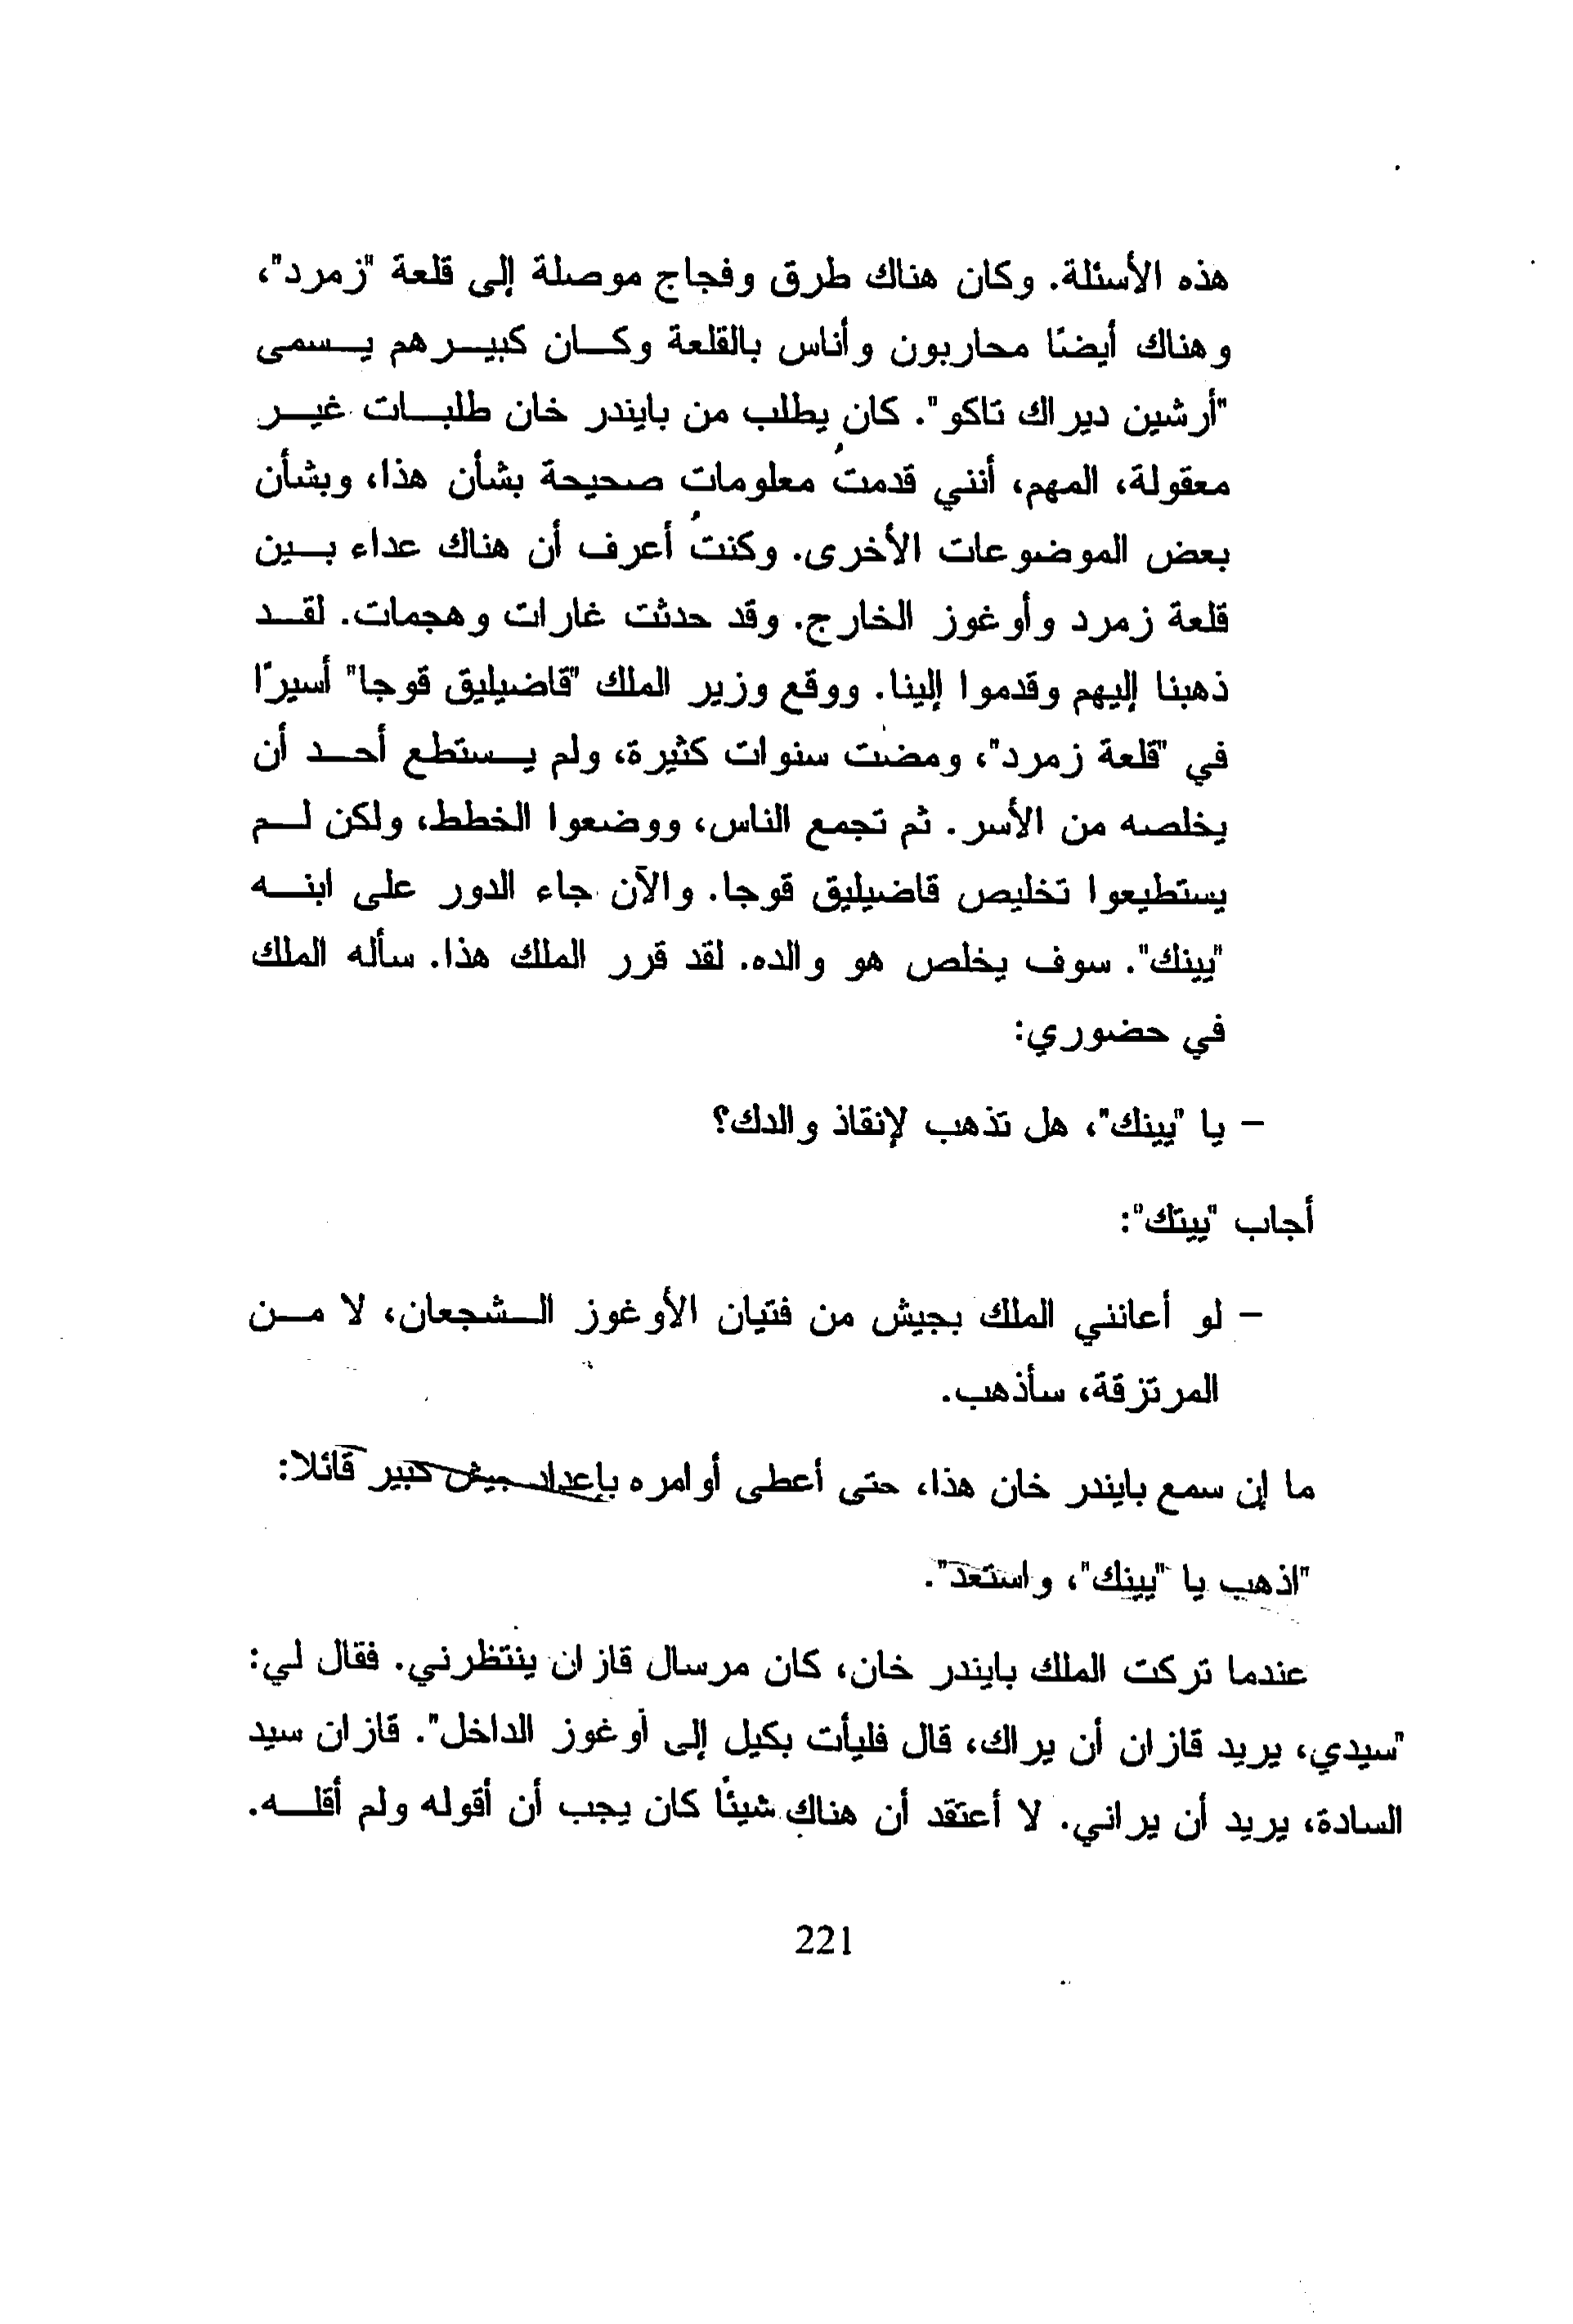 هذه الأسئلة. وكان هناك طرق وفجاج موصلة إلى قلعة "زمرد"،
وهناك أيضًا محاربون وأناس بالقلعة وكان كبيرهم يسمى
"أرشين ديراك تاكو". كان يطلب من بايندر خان طلبات غير
معقولة، المهم، أنني قدمتُ معلومات صحيحة بشأن هذا، وبشأن
بعض الموضوعات الأخرى. وكنتُ أعرف أن هناك عداء بين
قلعة زمرد وأوغوز الخارج. وقد حدثت غارات وهجمات. لقد
ذهبنا إليهم وقدموا إلينا. ووقع وزير الملك "قاضيليق قوجا" أسيرًا
في "قلعة زمرد"، ومضت سنوات كثيرة، ولم يستطع أحد أن
يخلصه من الأسر. ثم تجمع الناس، ووضعوا الخطط، ولكن لم
يستطيعوا تخليص قاضيليق قوجا. والآن جاء الدور على ابنه
"يينك". سوف يخلص هو والده. لقد قرر الملك هذا. سأله الملك
في حضوري:
- يا "يينك"، هل تذهب لإنقاذ والدك؟
أجاب "ييتك":
- لو أعانني الملك بجيش من فتيان الأوغوز الشجعان، لا من
المرتزقة، سأذهب.
ما إن سمع بايندر خان هذا، حتى أعطى أوامره بإعداد جيش كبير قائلا:
"اذهب يا "يينك"، واستعد".
عندما تركت الملك بايندر خان، كان مرسال قازان ينتظرني. فقال لي:
"سيدي، يريد قازان أن يراك، قال فليأت بكيل إلى أوغوز الداخل". قازان سيد
السادة، يريد أن يراني. لا أعتقد أن هناك شيئًا كان يجب أن أقوله ولم أقله.
221